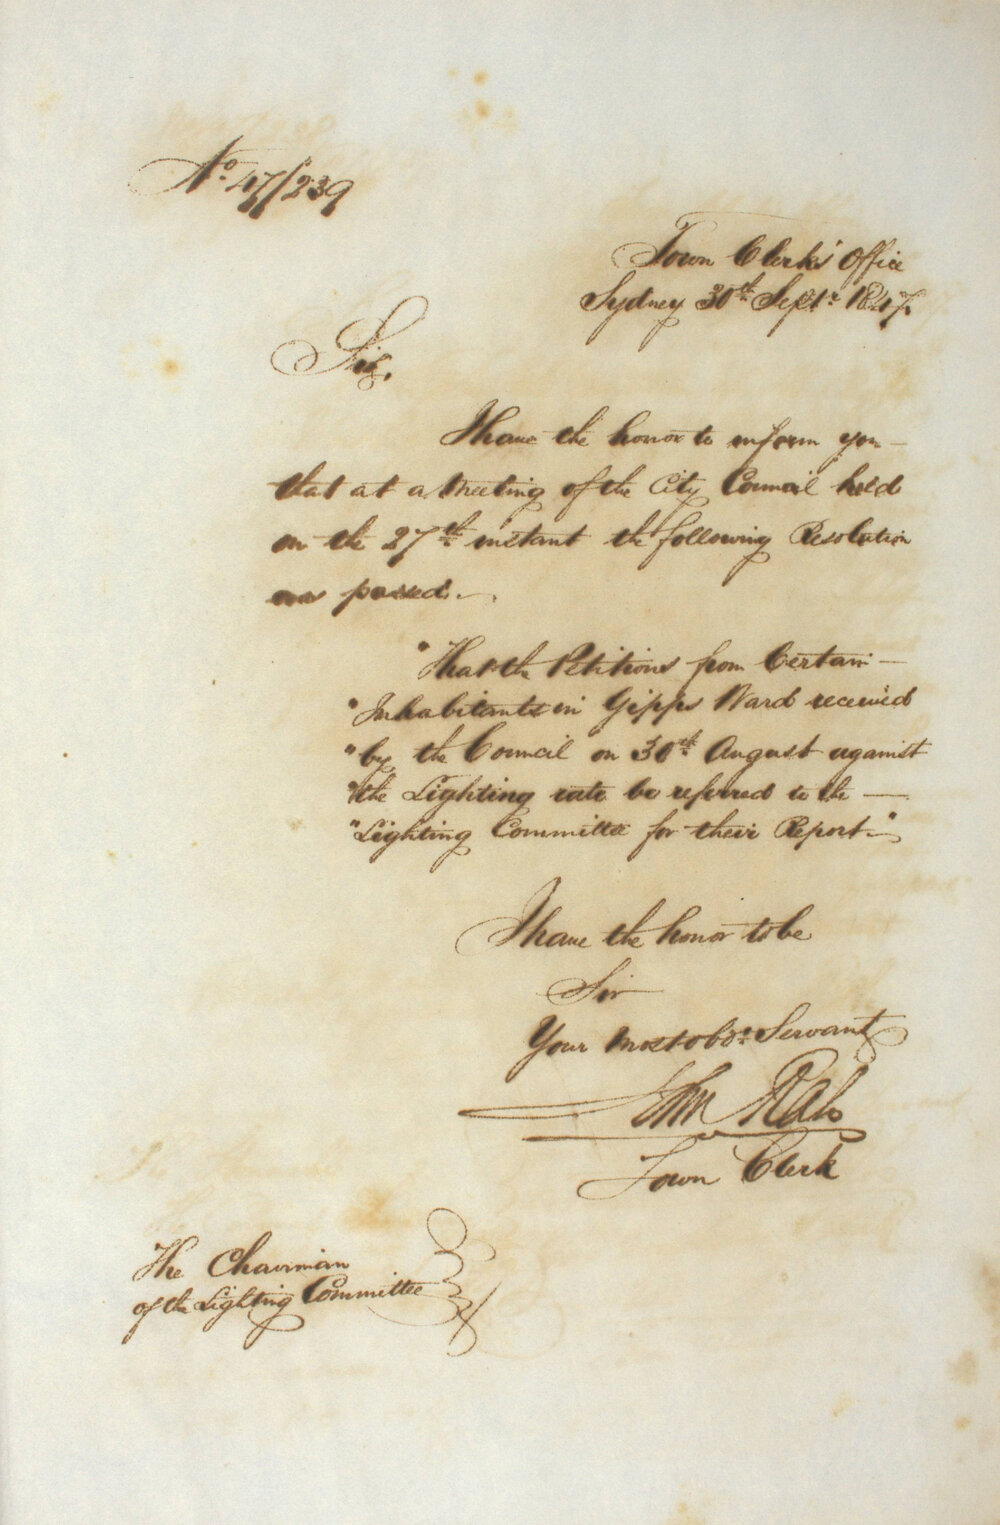 No. 47/239
Town Clerks' Office
Sydney 30th Septr. 1847.
Sir,
I have the honor to inform you —
that at a Meeting of the City Council held
on the 27th instant the following Resolution
was passed. —
"That the Petitions from Certain —
"Inhabitants in Gipps Ward received
"by the Council on 30th August against
"the Lighting rate be referred to the —
"Lighting Committee for their Report."
I have the honor to be
Sir
Your most obdt. Servant
John Rae
Town Clerk
The Chairman
of the Lighting Committee